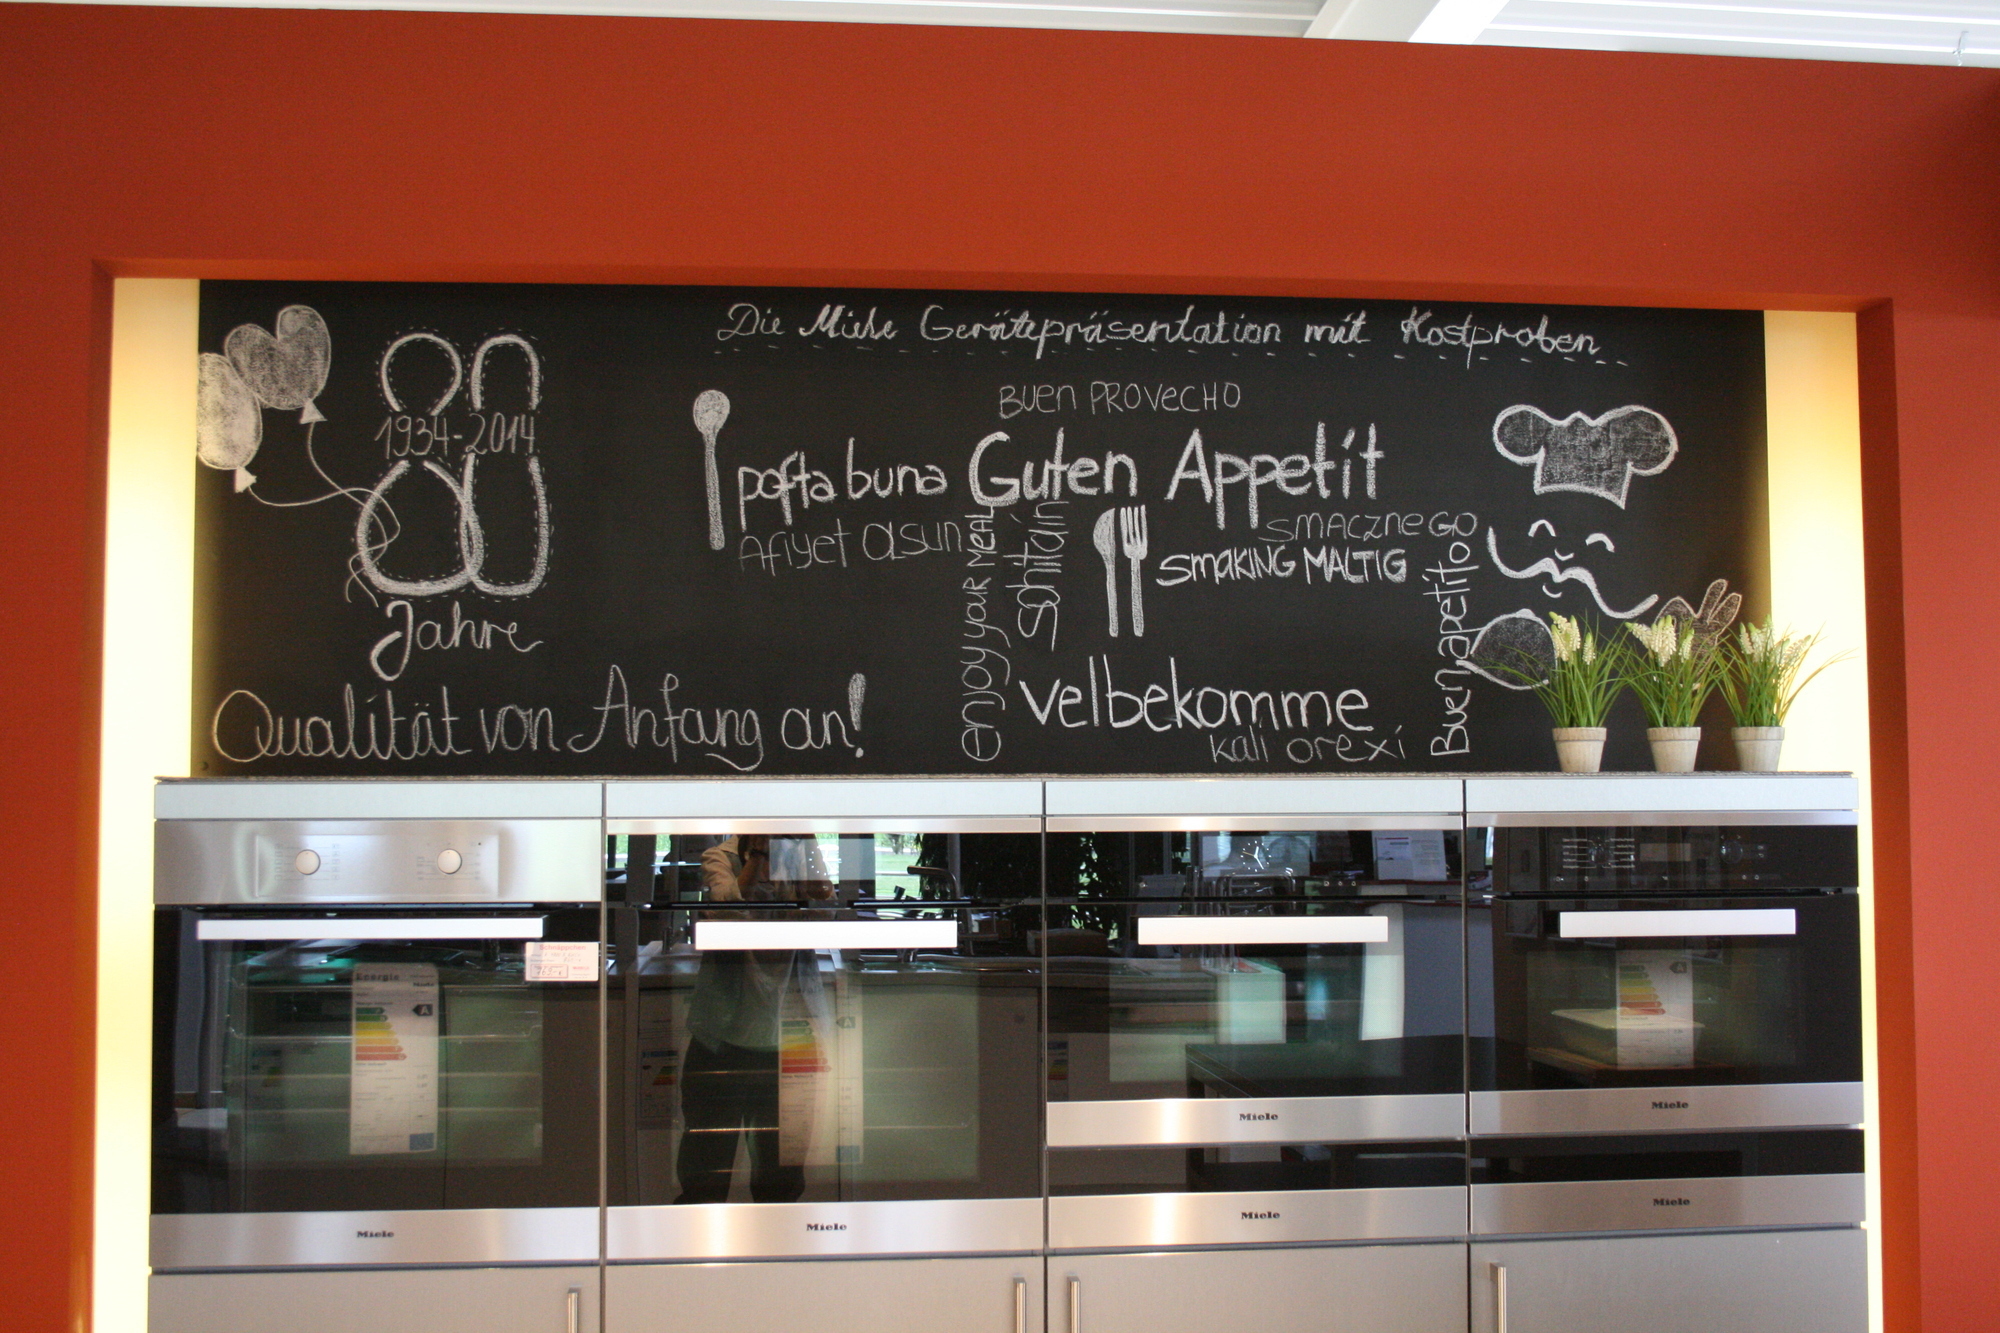 Die Miele Gerätepräsentation mit Kostproben
80
1934-2014
Jahre
Qualität von Anfang an!
BUEN PROVECHO
pofta buna
Guten Appetit
Afiyet olsun
SMACZNEGO
SMAKING MALTIG
enjoy your MEAL
Sahitain
Buen apetito
velbekomme
kali orexi
Schnäppchen
Energie
Miele
A
A
Miele
Miele
Miele
Miele
Miele
Miele